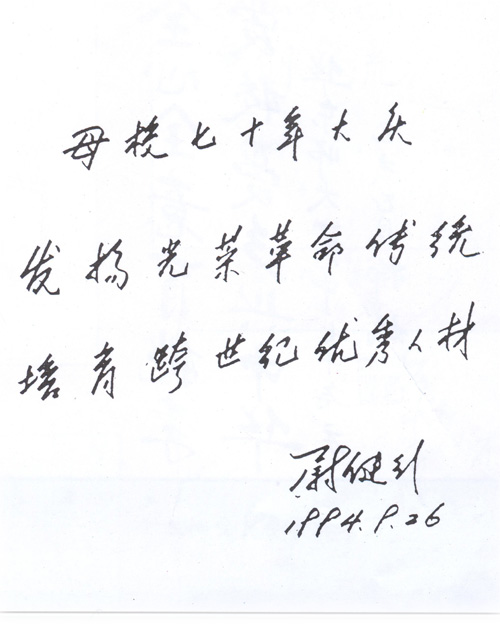 母校七十年大庆
发扬光荣革命传统
培育跨世纪优秀人材
尉健行
1994.9.26